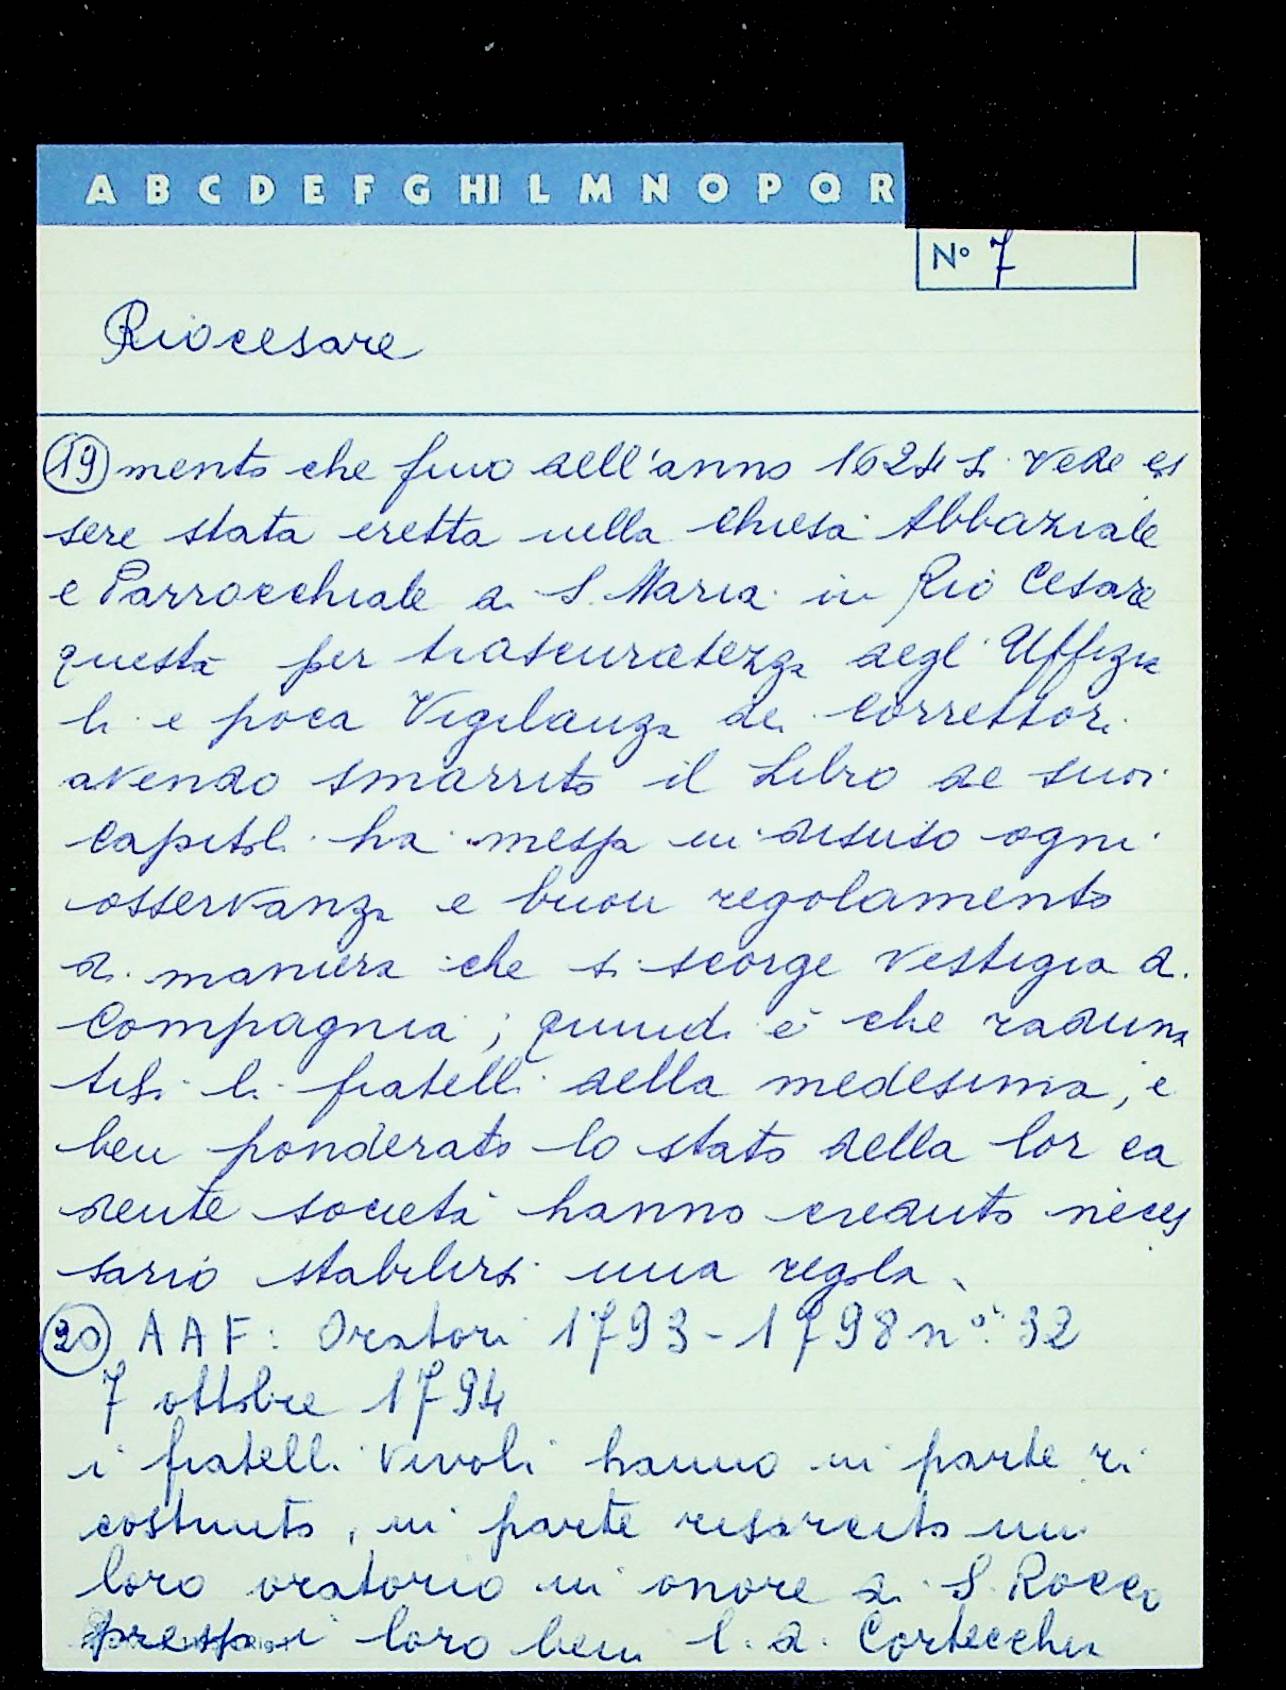 A B C D E F G HI L M N O P Q R
Nº 7
Riocesare
19 mento che fino dell'anno 1624 si vede es
sere stata eretta nella Chiesa Abbaziale
e Parrocchiale di S. Maria in Rio Cesare
questa per trascuratezza degl'Uffizia
li e poca Vigilanza dei Correttori
avendo smarrito il Libro de suoi
Capitoli ha messa in disuso ogni
osservanza e buon regolamento
di maniera che si scorge vestigia di
Compagnia; quindi è che raduna
tisi li fratelli della medesima, e
ben ponderato lo stato della lor ca
dente società hanno creduto neces
sario stabilirsi una regola.
20 AAF: Oratori 1793-1798 nº: 32
7 ottobre 1794
i fratelli Vivoli hanno in parte ri
costruito, in parte risarcito un
loro oratorio in onore di S. Rocco
presso i loro beni l.d. Cortecchia